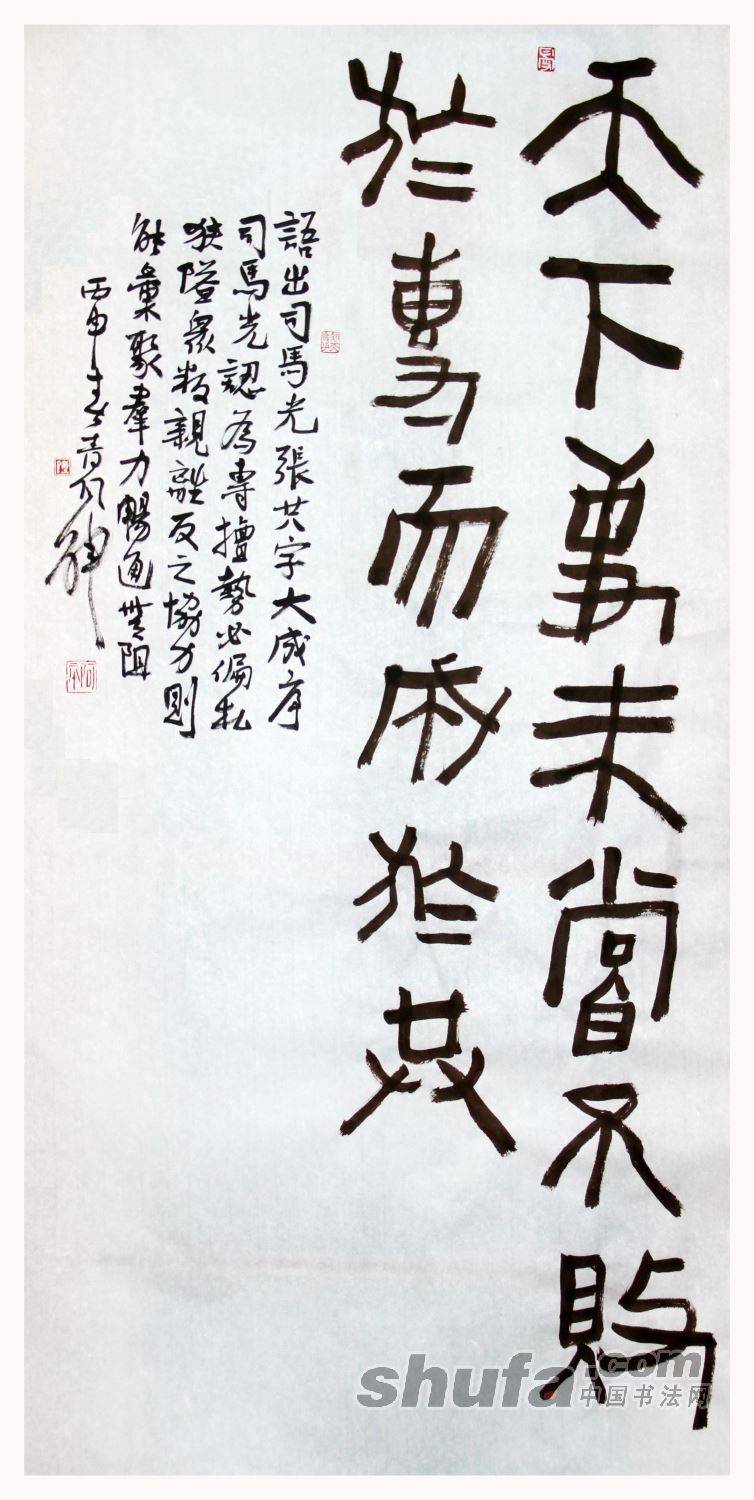 天下事未嘗不敗
於專而成於共
語出司馬光張共字大成序
司馬光認為專擅勢必偏私
狹隘眾叛親離反之協力則
能彙聚羣力暢通無阻
丙申春
shufa.com
中国书法网